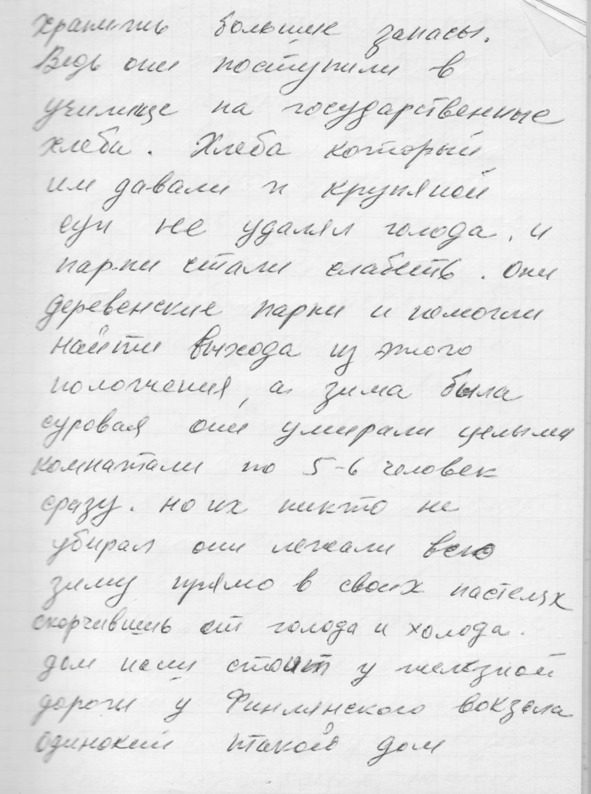 хранить большие запасы.
Ведь они поступили в
училище на государственные
хлеба. Хлеба который
им давали и крупяной
суп не удалял голода. и
парни стали слабеть. Они
деревенские парни и не могли
найти выхода из этого
положения, а зима была
суровая они умирали целыми
комнатами по 5-6 человек
сразу. но их никто не
убирал они лежали всю
зиму прямо в своих пастелях
скорчившись от голода и холода.
дом наш стоит у железной
дороги у Финлянского вокзала
одинокий такой дом